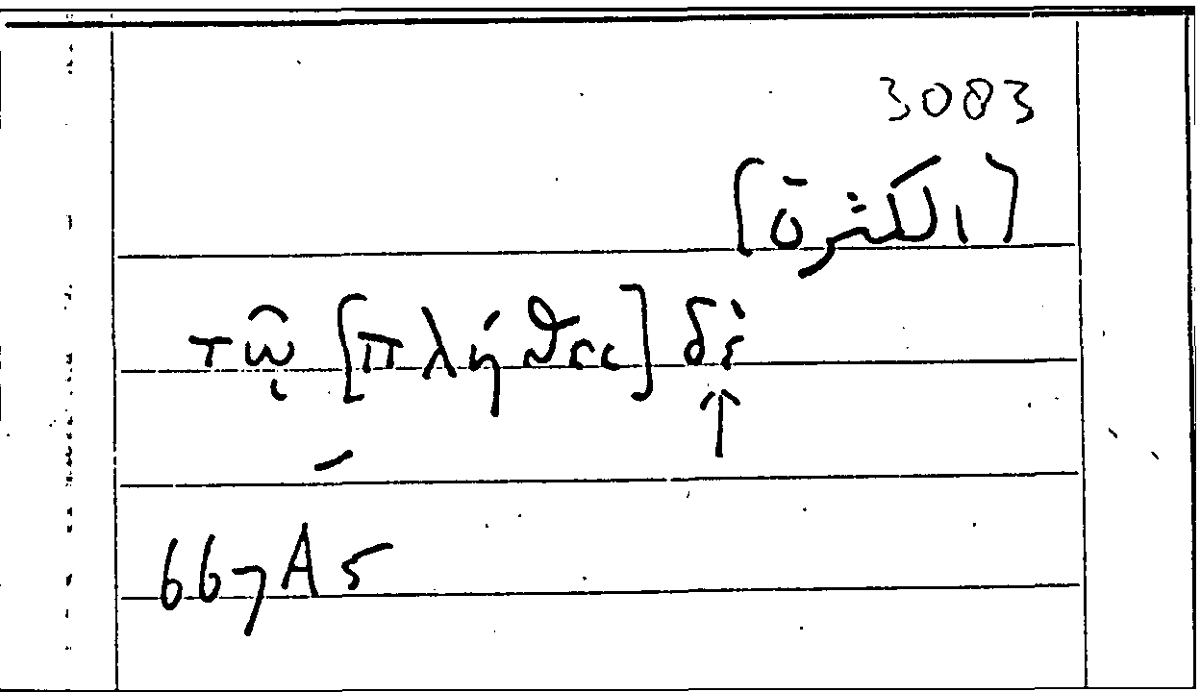 3083
[الكثرة]
τῷ [πλήθει] δὲ
↑
667A5